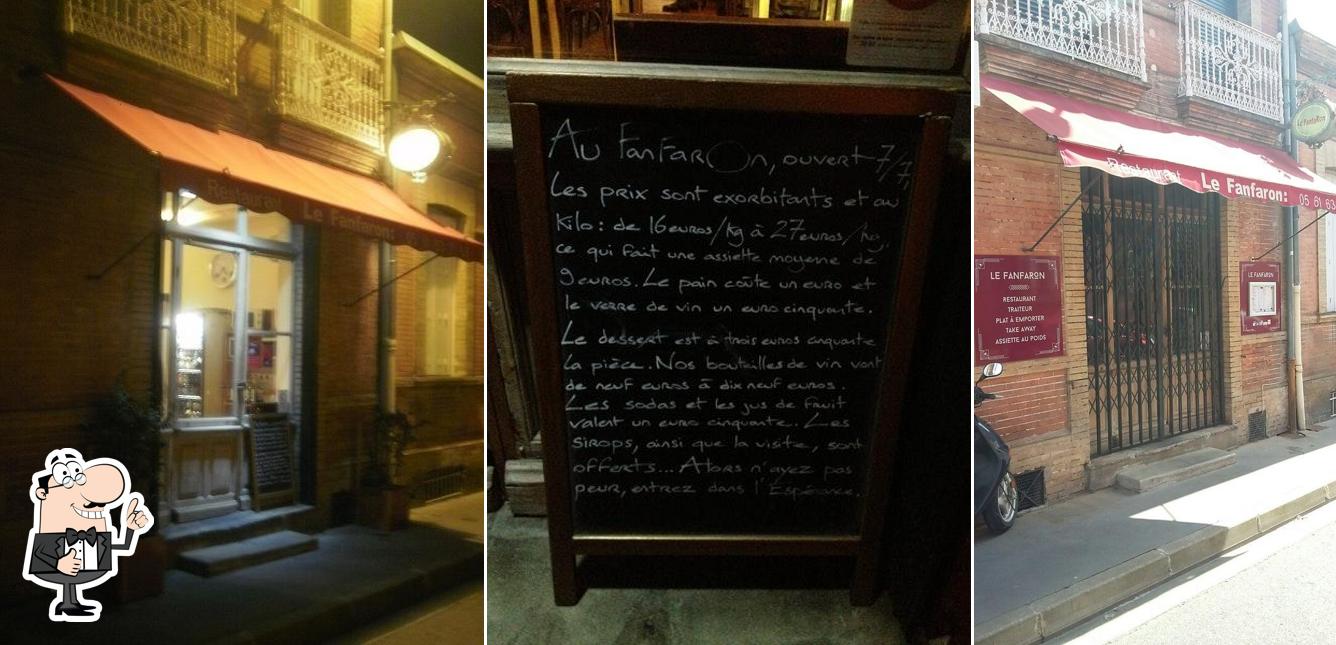 Restaurant Le Fanfaron:
Au FanFarOn, ouvert 7/7,
Les prix sont exorbitants et au
Kilo: de 16 euros/kg à 27 euros/kg,
ce qui fait une assiette moyenne de
9 euros. Le pain coûte un euro et
le verre de vin un euro cinquante.
Le dessert est à trois euros cinquante
la pièce. Nos bouteilles de vin vont
de neuf euros à dix neuf euros.
Les sodas et les jus de fruit
valent un euro cinquante. Les
sirops, ainsi que la visite, sont
offerts... Alors n'ayez pas
peur, entrez dans l'Espérance.
Le FanfaRon
Restaurant Le Fanfaron: 05 61 63
LE FANFARON
RESTAURANT
TRAITEUR
PLAT À EMPORTER
TAKE AWAY
ASSIETTE AU POIDS
LE FANFARON